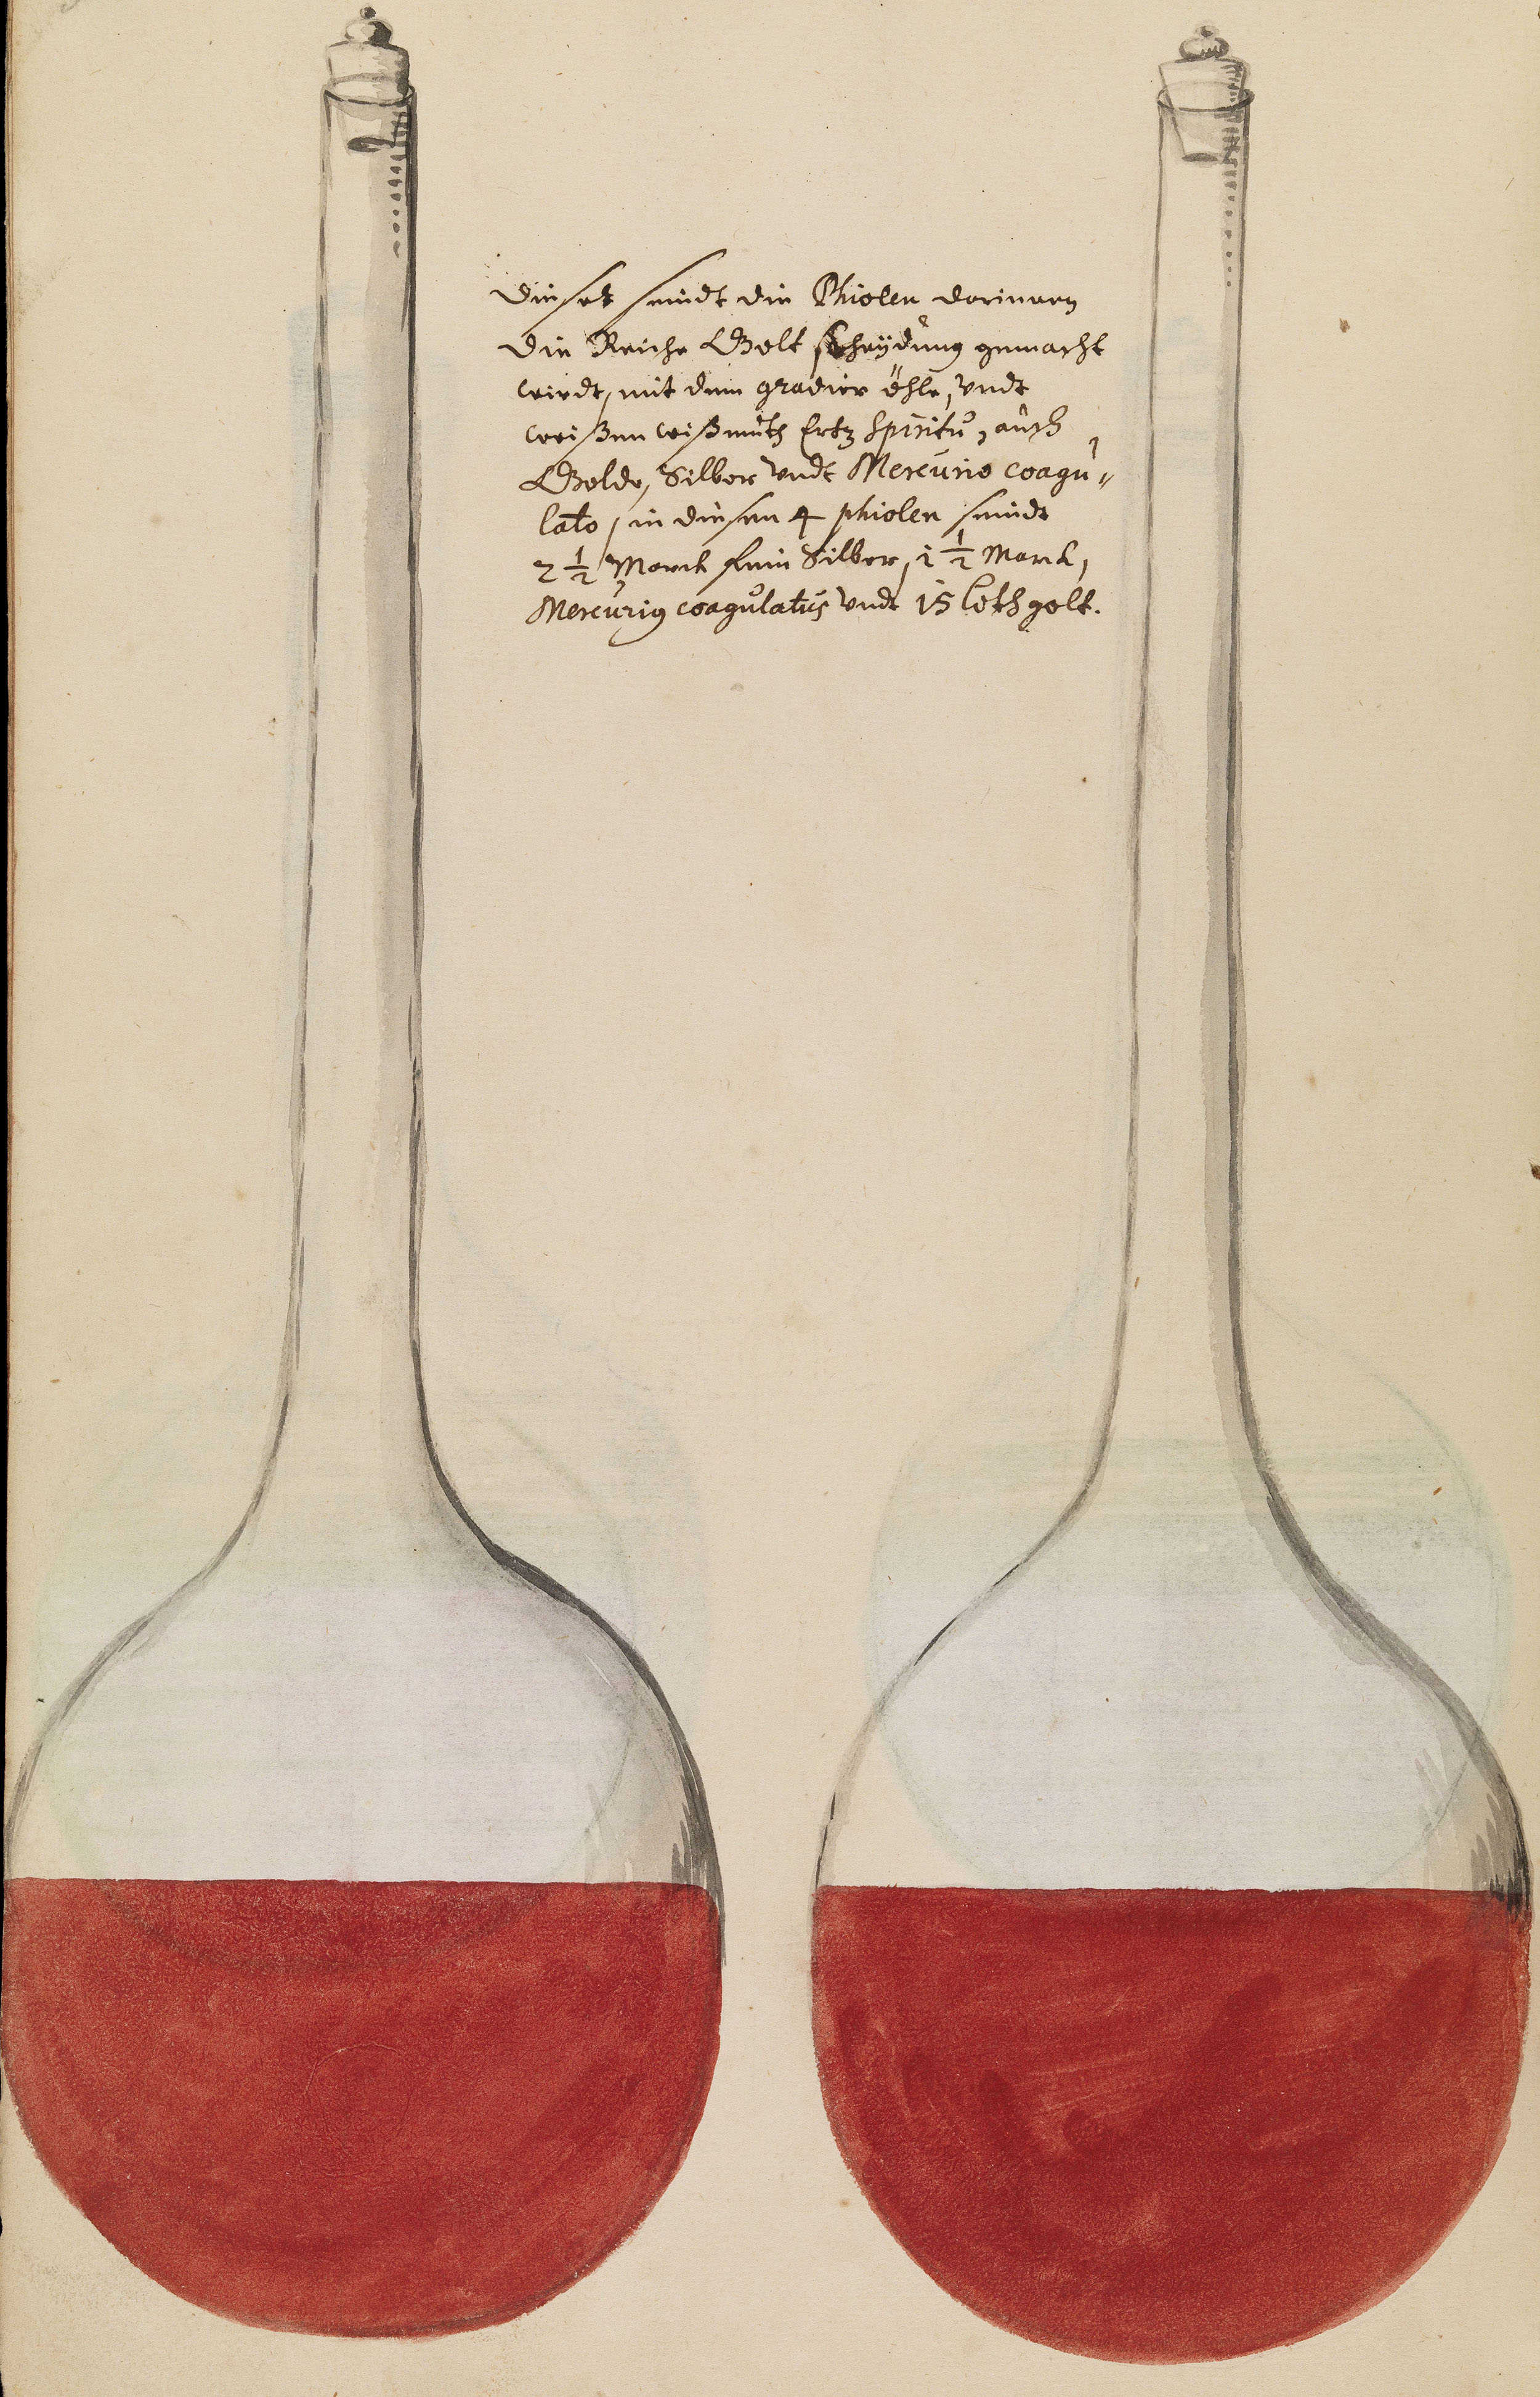 Dieses seindt die Phiolen darinnen
die Reiche Golt scheydung gemacht
wirdt, mit dem gradier öhle, vndt
weißen wißmuth Ertz Spiritu, auch
Golde, Silber vndt Mercurio coagu-
lato, in diesen 4 phiolen seindt
2 1/2 Marck fein Silber, 1 1/2 Marck,
Mercurius coagulatus vndt 15 loth golt.